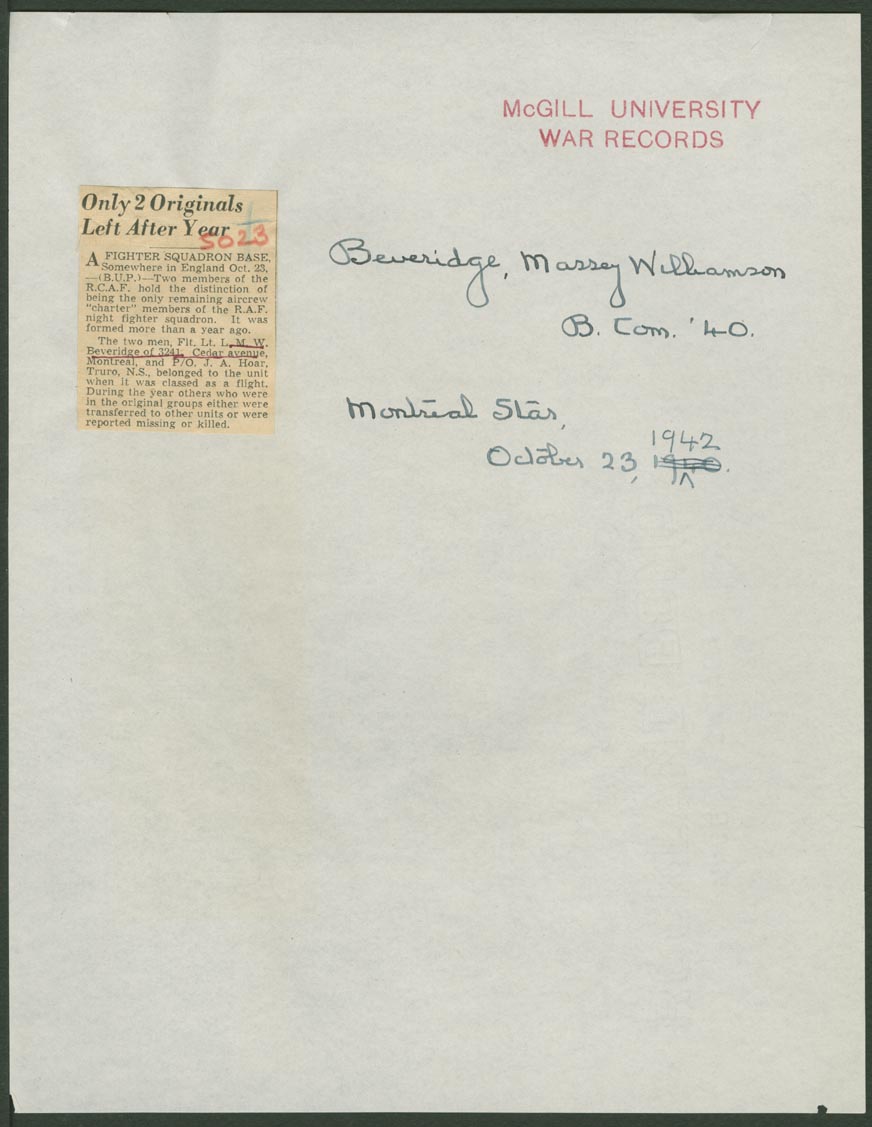 McGILL UNIVERSITY
WAR RECORDS
Only 2 Originals
Left After Year
5023
A FIGHTER SQUADRON BASE,
Somewhere in England Oct. 23,
—(B.U.P.)—Two members of the
R.C.A.F. hold the distinction of
being the only remaining aircrew
"charter" members of the R.A.F.
night fighter squadron. It was
formed more than a year ago.
The two men, Flt. Lt. L. M. W.
Beveridge of 3241, Cedar avenue,
Montreal, and P/O. J. A. Hoar,
Truro, N.S., belonged to the unit
when it was classed as a flight.
During the year others who were
in the original groups either were
transferred to other units or were
reported missing or killed.
Beveridge, Massey Williamson
B. Com. '40.
Montreal Star,
1942
October 23, 1940.